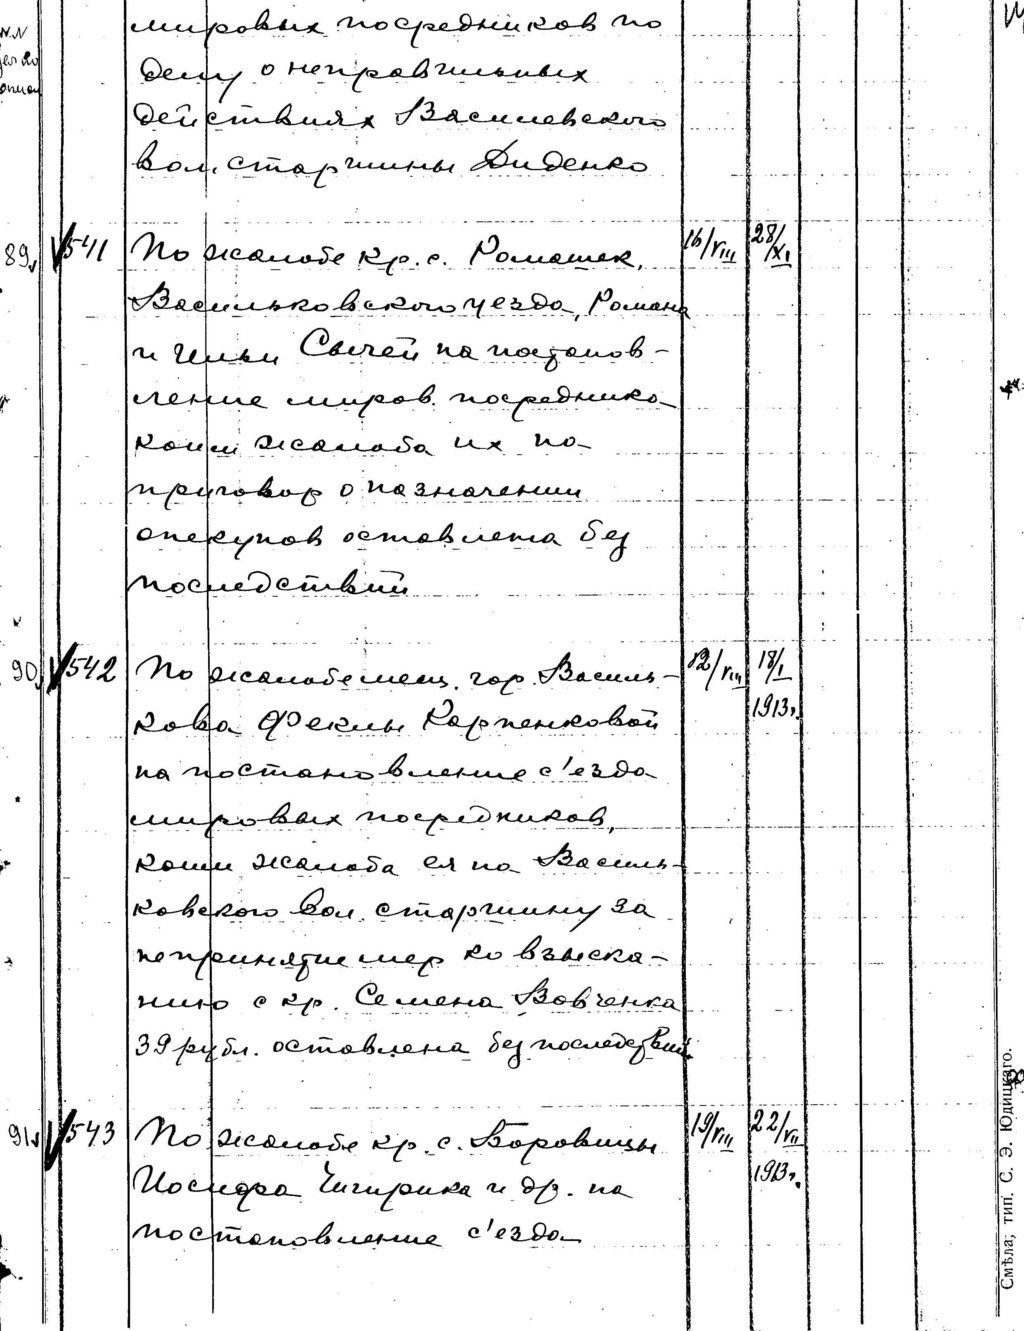 мировых посредников по
делу о неправильных
действиях Василевского
вол. старшины Диденко
89 541 По жалобе кр. с. Ромашек, 16/VIII 28/XI
Васильковского уезда, Романа
и Ильи Сычей на постанов-
ление миров. посредника
коим жалоба их на
приговор о назначении
опекунов оставлена без
последствий
90 542 По жалобе мещ. гор. Василь- 12/VIII 18/I
кова Феклы Карпенковой 1913г.
на постановление с'езда
мировых посредников,
коим жалоба ея на Василь-
ковского вол. старшину за
непринятие мер ко взыска-
нию с кр. Семена Вовченка
39 рубл. оставлена без последствий
91 543 По жалобе кр. с. Боровицы 19/VIII 22/VII
Иосифа Чигирика и др. на 1913г.
постановление с'езда
Смѣла, тип. С. Э. Юдицкаго.